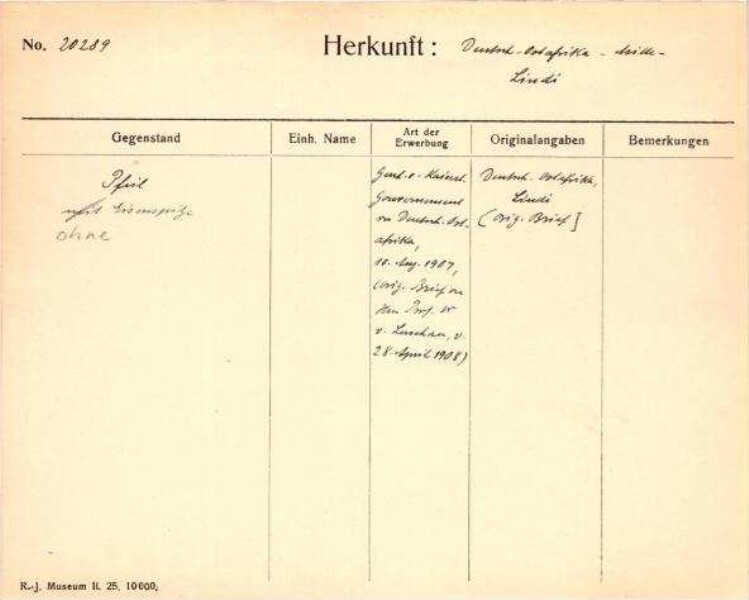 No. 20289
Herkunft: Deutsch-Ostafrika -
Lindi
Gegenstand
Einh. Name
Art der Erwerbung
Originalangaben
Bemerkungen
Pfeil
mit Eisenspitze
ohne
Gesch. v. Kaiserl.
Gouvernement
von Deutsch-Ost-
afrika,
10. Aug. 1907,
(orig. Brief an
Hrn Prof. Dr
v. Luschan, v.
28. April 1908)
Deutsch-Ostafrika,
Lindi
(Orig. Brief]
R.-J. Museum II. 25, 10000.